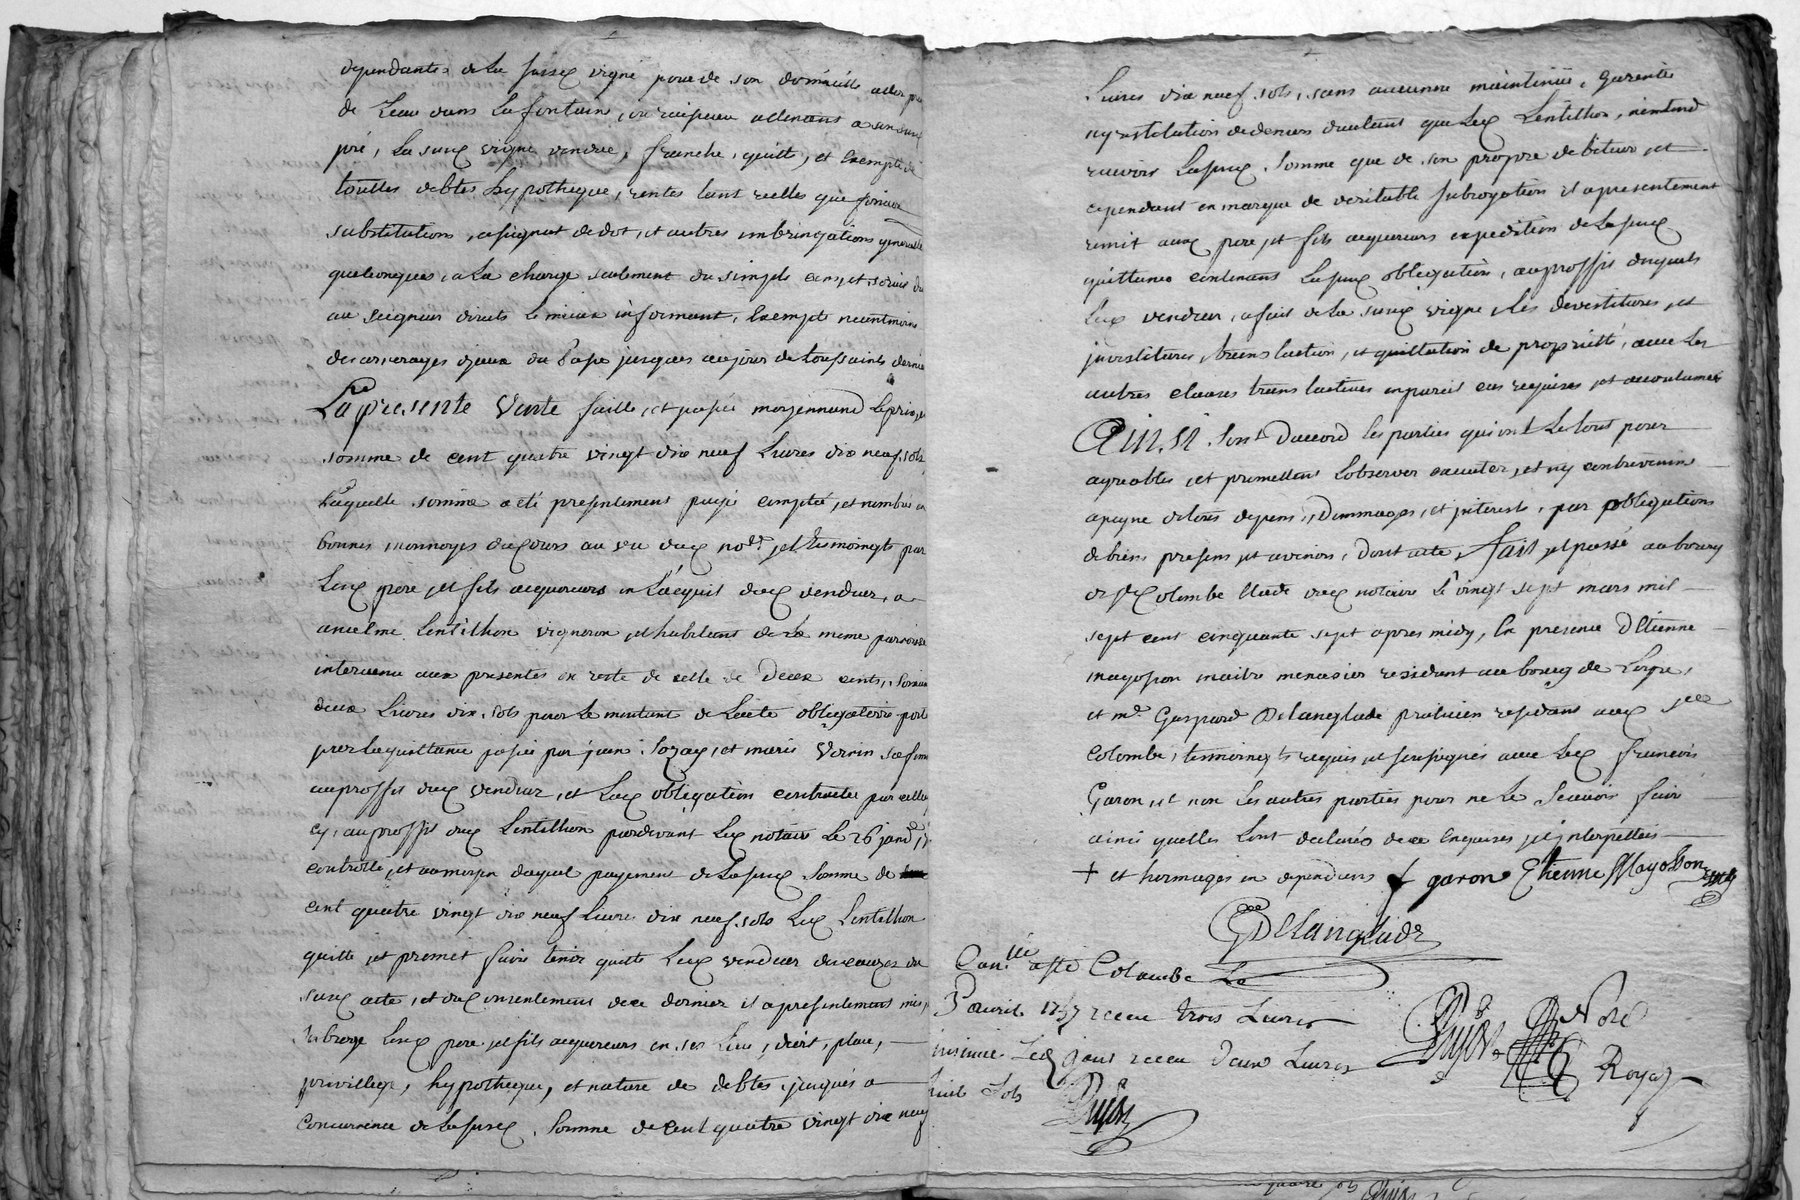 dependante de la susex vigne pour de son domicille aller
de leau dans la fontaine, ou ruisseau attenant a son susx
pré, la susx vigne vendue, franche, quitte, et exempte de
touttes debtes hypotheque, rentes tant reelles que
substitutions, assignat de dot, et autres
quelconques, a la charge seulement du simple cens, et servis du
au seigneur directs le mieux informant, Exempte neantmoins
des arrerages djceux du passe jusques aujour de toussaints dernier
La presente vente faitte, et passée moyennand le prix, et
somme de cent quatre vingt dix neuf Livres dix neuf sols
Laquelle somme a eté presentement payé comptée, et nombrée en
bonnes monnoyes ducours au veu dux nore, et temoingts par
Lesx pere, et fils acquereurs en l'acquit dux vendeur, a
anselme Lentillon vigneron, et habitant de la meme parroisse
intervenu aux presentes en reste de celle de Deux cents,
deux Livres dix sols pour le montant de Lacte obligatoire porté
par la quittance passée par jean et marie Vernin sa femme
au proffit dux vendeur, et Lax obligation contractée par celluy
cy, au proffit dux Lentillon pardevant Lex notaire Le 26 janv.
controllé, et aumoyen duquel payement de Lasusx somme de
cent quatre vingt dix neuf Livres dix neuf sols Lex Lentillon
quitte, et promet faire tenir quitte Lex vendeur descauzes du
susx acte, et dux consentement dece dernier il a presentement mis,
subrogé Lesx pere, et fils acquereurs en ses Lieu, droit, place,
privillege, hypotheque, et nature de debtes, jusques a
concurrence de Lasusex. somme de cent quatre vingt dix neuf
Livres dix neuf sols, sans aucunne maintenue, garentie
ny restitution de deniers dautant que Lex Lentillon, nentend
recevoir Lasusx. somme que de son propre debiteur, et
cependant en marque de veritable subrogation il a presentement
remit auxx pere, et fils acquereurs expedition de Lasusx
quittance contenant Lasusx obligation, au proffit duquels
Lex vendeur, a fait de la susx vigne, les devestitures, et
jnvestitures, translaction, et quittation de proprieté, avec les
autres clauses translatives en pareil cas requises, et accoutumés
Ainsi sont d'accord les parties qui ont le tout pour
agreables, et promettent l'observer executer, et ny contrevenir
apeyne detous depens, Dommages, et jnterest, par obligations
de biens presens et avenirs, Dont acte, fait, et passé au bourg
de ste Colombe Etude dux notaire Le vingt sept mars mil
sept cent cinquante sept apres midy, En presence D'Etienne
mayosson maitre menusier residant au bourg de Loyre,
et mr. Gaspard Delanglade praticien residant aux ste
Colombe, temoingts requis et soussignés avec Lex francois
Garon, et non les autres parties pour ne le scavoir faire
ainsi quelles l'ont declarés de ce Enquises, et jnterpellées
+ et hormages en dependans f garon Etienne Mayosson
GDelanglade
Conllé a ste Colombe Le
3 avril 1757 receu trois Livres
insinué Led jour receu Deux Livres
huit sols
Pujos Nore
Royal
Pujos